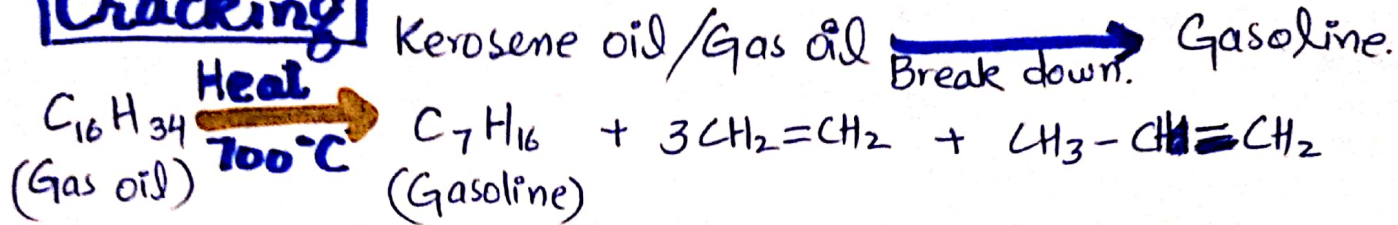 Cracking
Kerosene oil/Gas oil Break down. Gasoline.
C₁₆H₃₄ Heat 700°C C₇H₁₆ + 3CH₂=CH₂ + CH₃-CH=CH₂
(Gas oil) (Gasoline)